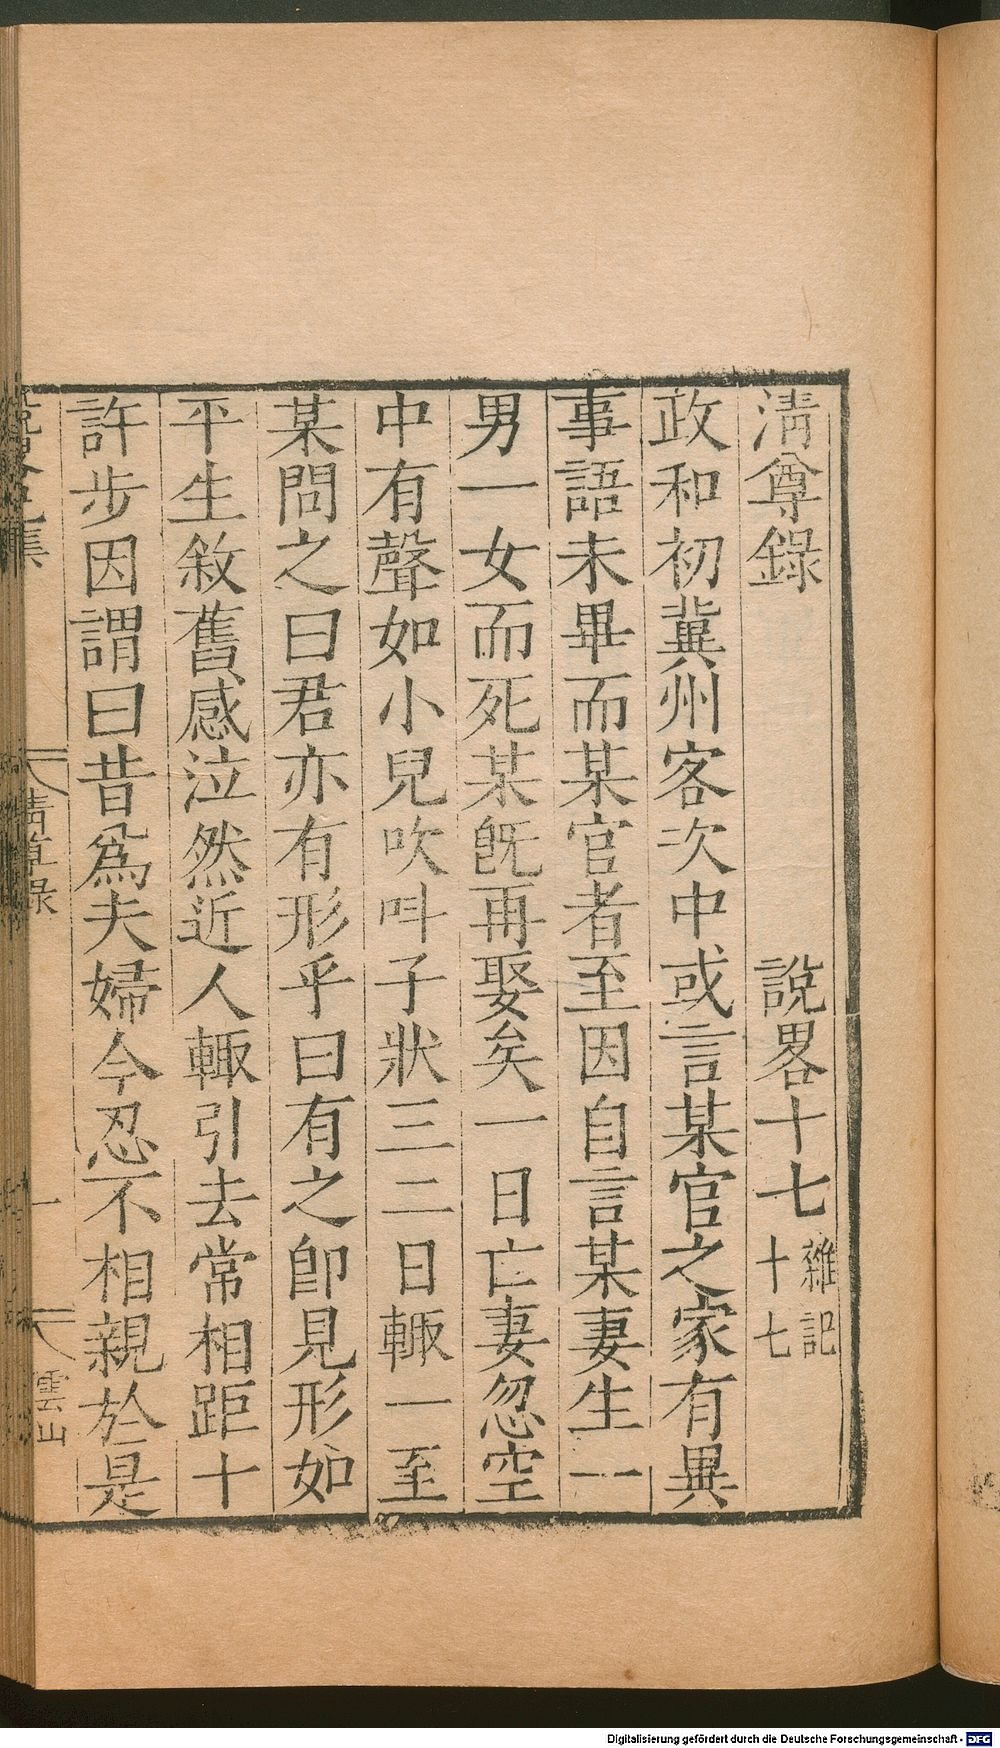 清尊錄 說畧十七 雜記十七
政和初冀州客次中或言某官之家有異
事語未畢而某官者至因自言某妻生一
男一女而死某旣再娶矣一日亡妻忽空
中有聲如小兒吹呌子狀三二日輙一至
某問之曰君亦有形乎曰有之卽見形如
平生敘舊感泣然近人輙引去常相距十
許步因謂曰昔爲夫婦今忍不相親於是
清尊錄 一 雲山
Digitalisierung gefördert durch die Deutsche Forschungsgemeinschaft - DFG